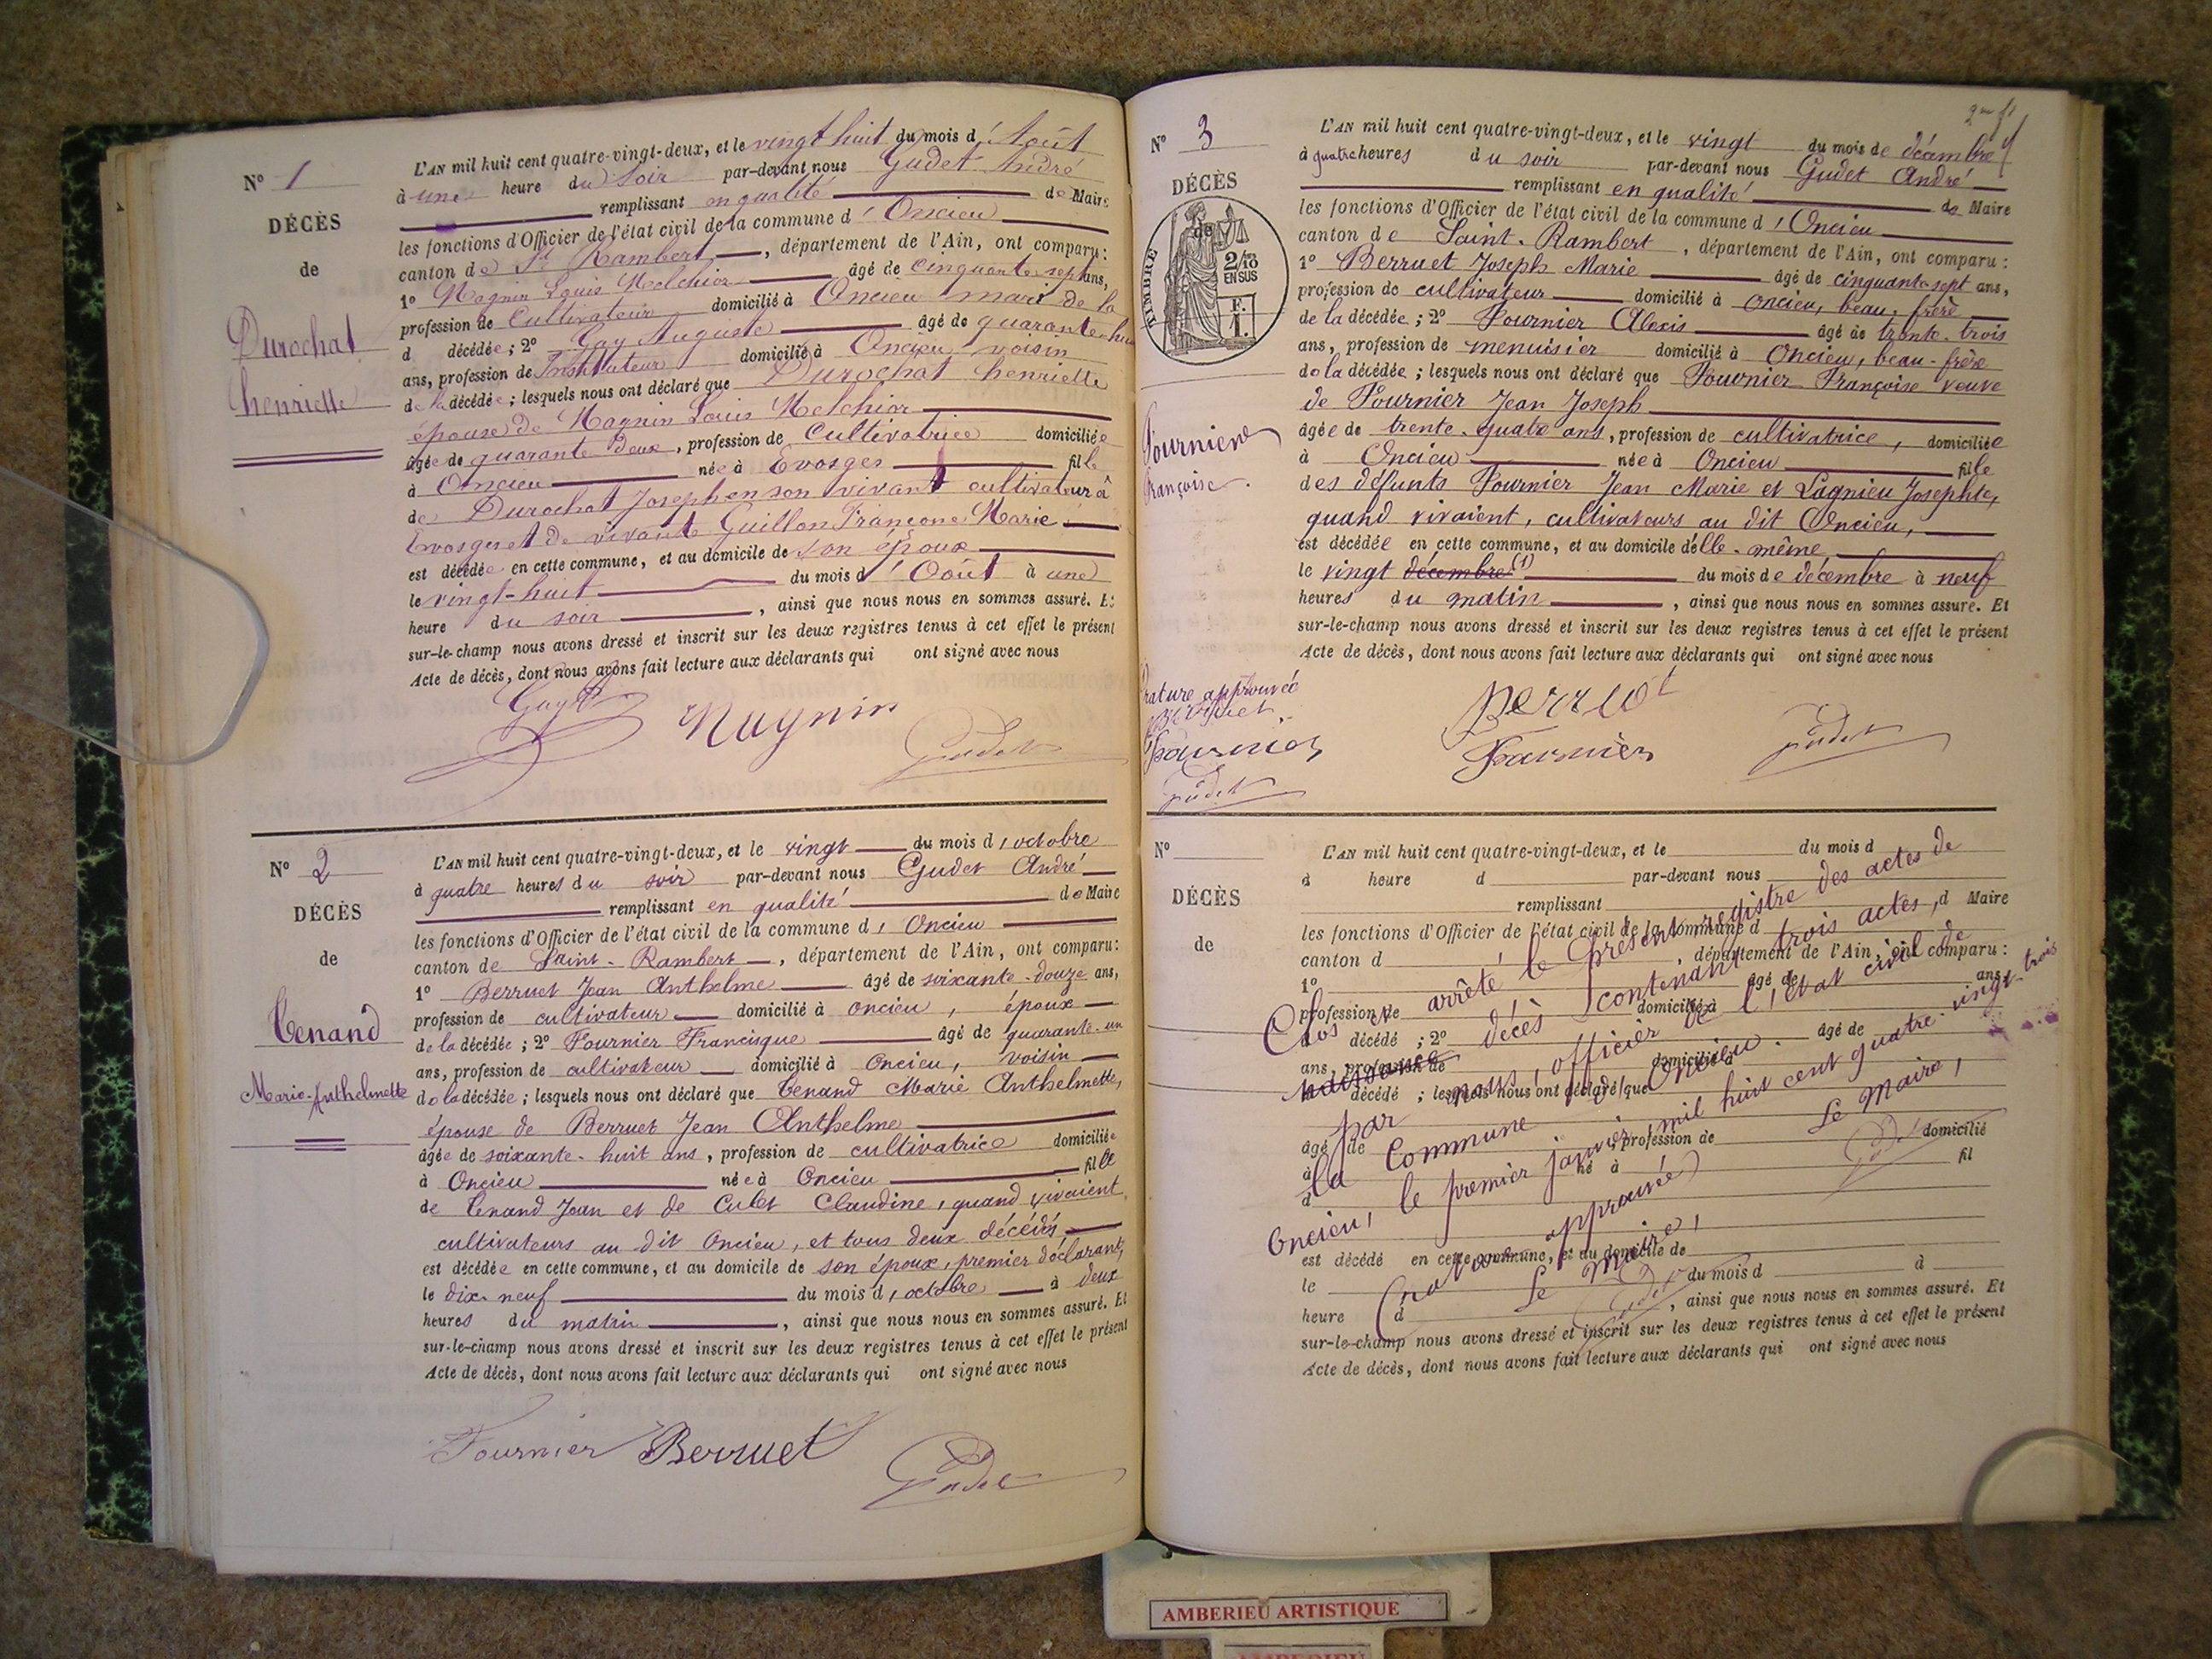 N° 1
DÉCÈS
de
Durochat
henriette
L'AN mil huit cent quatre-vingt-deux, et le vingt huit du mois d'Août
à une heure du soir par-devant nous Gudet André
remplissant en qualité de Maire
les fonctions d'Officier de l'état civil de la commune d'Oncieu
canton de St Rambert, département de l'Ain, ont comparu:
1° Magnin Louis Melchior âgé de cinquante sept ans,
profession de Cultivateur domicilié à Oncieu mari de la
d décédée; 2° Gay Auguste âgé de quarante-huit
ans, profession de Instituteur domicilié à Oncieu voisin
de la décédée; lesquels nous ont déclaré que Durochat henriette
épouse de Magnin Louis Melchior
âgée de quarante deux, profession de Cultivatrice domiciliée
à Oncieu née à Evosges fille
de Durochat Joseph en son vivant cultivateur à
Evosges et de vivante Guillon Françoise Marie
est décédée en cette commune, et au domicile de son époux
le vingt-huit du mois d'Août à une
heure du soir, ainsi que nous nous en sommes assuré. Et
sur-le-champ nous avons dressé et inscrit sur les deux registres tenus à cet effet le présent
Acte de décès, dont nous avons fait lecture aux déclarants qui ont signé avec nous
Gay
Magnin
Gudet
N° 2
DÉCÈS
de
Tenand
Marie-Anthelmette
L'AN mil huit cent quatre-vingt-deux, et le vingt du mois d'octobre
à quatre heures du soir par-devant nous Gudet André
remplissant en qualité de Maire
les fonctions d'Officier de l'état civil de la commune d'Oncieu
canton de Saint-Rambert, département de l'Ain, ont comparu:
1° Berruet Jean Anthelme âgé de soixante-douze ans,
profession de cultivateur domicilié à oncieu, époux
de la décédée; 2° Fournier Francisque âgé de quarante-un
ans, profession de cultivateur domicilié à oncieu, voisin
de la décédée; lesquels nous ont déclaré que Tenand Marie Anthelmette,
épouse de Berruet Jean Anthelme
âgée de soixante-huit ans, profession de cultivatrice domiciliée
à Oncieu née à Oncieu fille
de Tenand Jean et de Culet Claudine, quand vivaient
cultivateurs au dit Oncieu, et tous deux décédés
est décédée en cette commune, et au domicile de son époux, premier déclarant,
le dix-neuf du mois d'octobre à deux
heures du matin, ainsi que nous nous en sommes assuré. Et
sur-le-champ nous avons dressé et inscrit sur les deux registres tenus à cet effet le présent
Acte de décès, dont nous avons fait lecture aux déclarants qui ont signé avec nous
Fournier Berruet
Gudet
N° 3
DÉCÈS
de
TIMBRE
2/10
EN SUS
F.
1.
Fournier
Françoise.
L'AN mil huit cent quatre-vingt-deux, et le vingt du mois de décembre
à quatre heures du soir par-devant nous Gudet André
remplissant en qualité de Maire
les fonctions d'Officier de l'état civil de la commune d'Oncieu
canton de Saint-Rambert, département de l'Ain, ont comparu:
1° Berruet Joseph Marie âgé de cinquante sept ans,
profession de cultivateur domicilié à oncieu, beau-frère
de la décédée; 2° Fournier Alexis âgé de trente-trois
ans, profession de menuisier domicilié à Oncieu, beau-frère
de la décédée; lesquels nous ont déclaré que Fournier Françoise veuve
de Fournier Jean Joseph
âgée de trente-quatre ans, profession de cultivatrice, domiciliée
à Oncieu née à Oncieu fille
des défunts Fournier Jean Marie et Lagnieu Josephte,
quand vivaient, cultivateurs au dit Oncieu,
est décédée en cette commune, et au domicile d'elle-même
le vingt décembre (1) du mois de décembre à neuf
heures du matin, ainsi que nous nous en sommes assuré. Et
sur-le-champ nous avons dressé et inscrit sur les deux registres tenus à cet effet le présent
Acte de décès, dont nous avons fait lecture aux déclarants qui ont signé avec nous
rature approuvée
Berruet
Fournier
Gudet
Berruet
Fournier
Gudet
N°
DÉCÈS
de
L'AN mil huit cent quatre-vingt-deux, et le du mois d
à heure d par-devant nous
remplissant d Maire
les fonctions d'Officier de l'état civil de la commune d
canton d, département de l'Ain, ont comparu:
1° âgé de ans,
profession de domicilié à
d décédé; 2° âgé de
ans, profession de domicilié à
d décédé; lesquels nous ont déclaré que
âgé de, profession de domicilié
à né à fil
d
est décédé en cette commune, et au domicile de
le du mois d à
heure d, ainsi que nous nous en sommes assuré. Et
sur-le-champ nous avons dressé et inscrit sur les deux registres tenus à cet effet le présent
Acte de décès, dont nous avons fait lecture aux déclarants qui ont signé avec nous
Clos et arrêté le présent registre des actes de
naissance décès contenant trois actes,
par nous, officier de l'état civil de
la Commune d'Oncieu.
Oncieu, le premier janvier mil huit cent quatre-vingt-trois
Le Maire,
Gudet
(rature approuvée)
Le Maire,
Gudet
AMBERIEU ARTISTIQUE
AMBERIEU